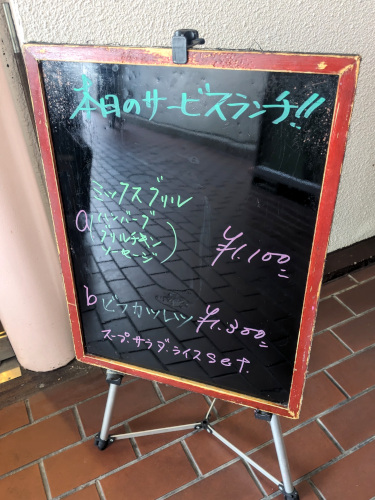 本日のサービスランチ!!
ミックスグリル
a(ハンバーグ
グリルチキン
ソーセージ)
¥1,100-
b ビフカツレツ ¥1,300-
スープ.サラダ.ライスset.